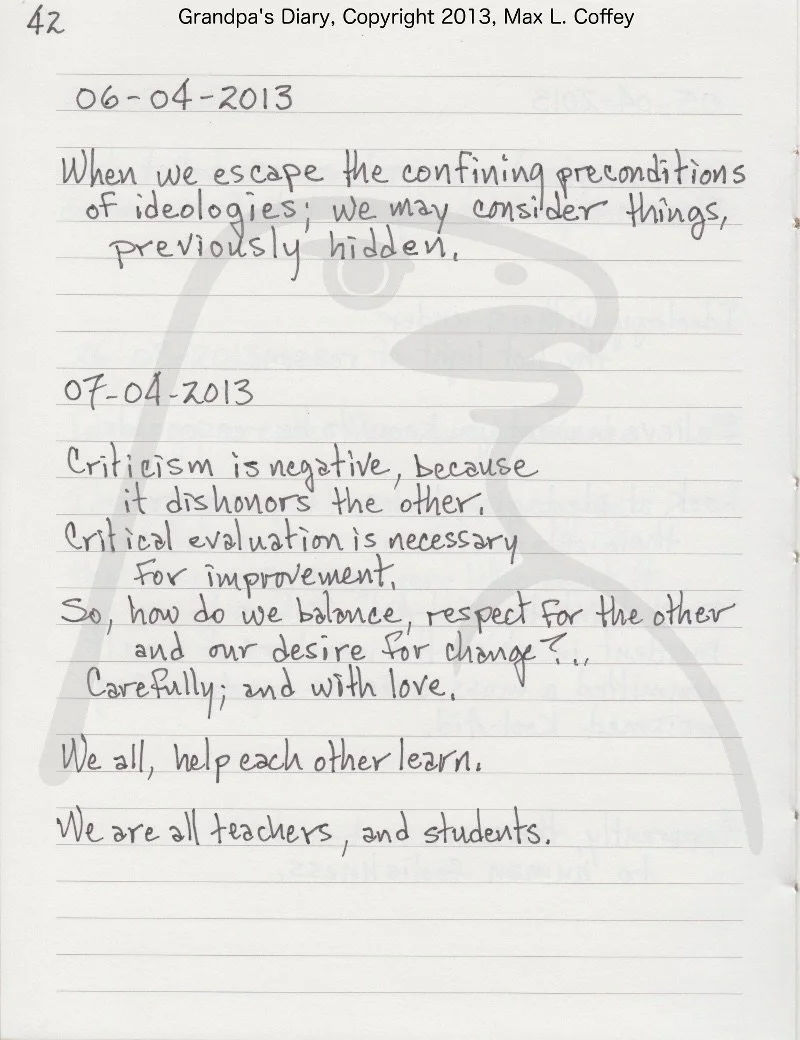 42
Grandpa's Diary, Copyright 2013, Max L. Coffey
06-04-2013
When we escape the confining preconditions
of ideologies; we may consider things,
previously hidden.
07-04-2013
Criticism is negative, because
it dishonors the other.
Critical evaluation is necessary
for improvement.
So, how do we balance, respect for the other
and our desire for change?...
Carefully; and with love.
We all, help each other learn.
We are all teachers, and students.